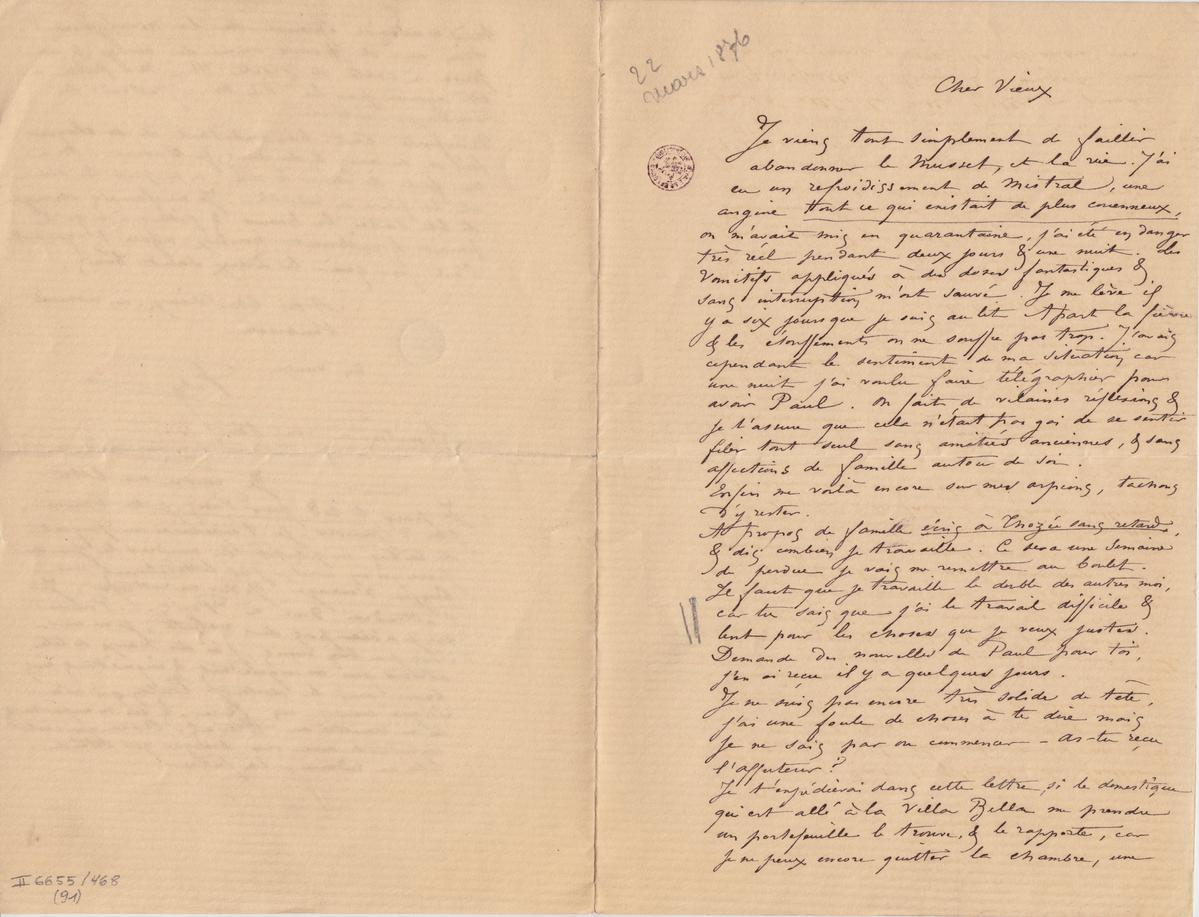 22
mars 1876
Cher Vieux
Je viens tout simplement de faillir
abandonner le Musset, et la vie. J'ai
eu un refroidissement de Mistral, une
angine tout ce qui existait de plus couenneux,
on m'avait mis en quarantaine, j'ai été en danger
très réel pendant deux jours & une nuit. Des
vomitifs appliqués à des doses fantastiques &
sans interruption m'ont sauvé. Je me lève il
y a six jours que je suis au lit. Apart la fièvre
& les étouffements on ne souffre pas trop. J'avais
cependant le sentiment de ma situation car
une nuit j'ai voulu faire télégraphier pour
avoir Paul. On fait de vilaines réflexions &
je t'assure que cela n'était pas gai de se sentir
filer tout seul sans amitiés anciennes, & sans
affections de famille autour de soi.
Enfin me voilà encore sur mes arpions, tachons
d'y rester.
A propos de famille écris à Thozée sans retard,
& dis combien je travaille. Ce sera une semaine
de perdue je vais me remettre au boulet.
Il faut que je travaille le double des autres moi,
car tu sais que j'ai le travail difficile &
lent pour les choses que je veux justes.
Demande des nouvelles de Paul pour toi,
j'en ai reçu il y a quelques jours.
Je ne suis pas encore très solide de tête,
j'ai une foule de choses à te dire mais
je ne sais par ou commencer – as-tu reçu
l'affuteur?
Je t'expédierai dans cette lettre, si le domestique
qui est allé à la Villa Bella me prendre
un portefeuille le trouve, & le rapporte, car
je ne peux encore quitter la chambre, une
II 6655/468
(91)